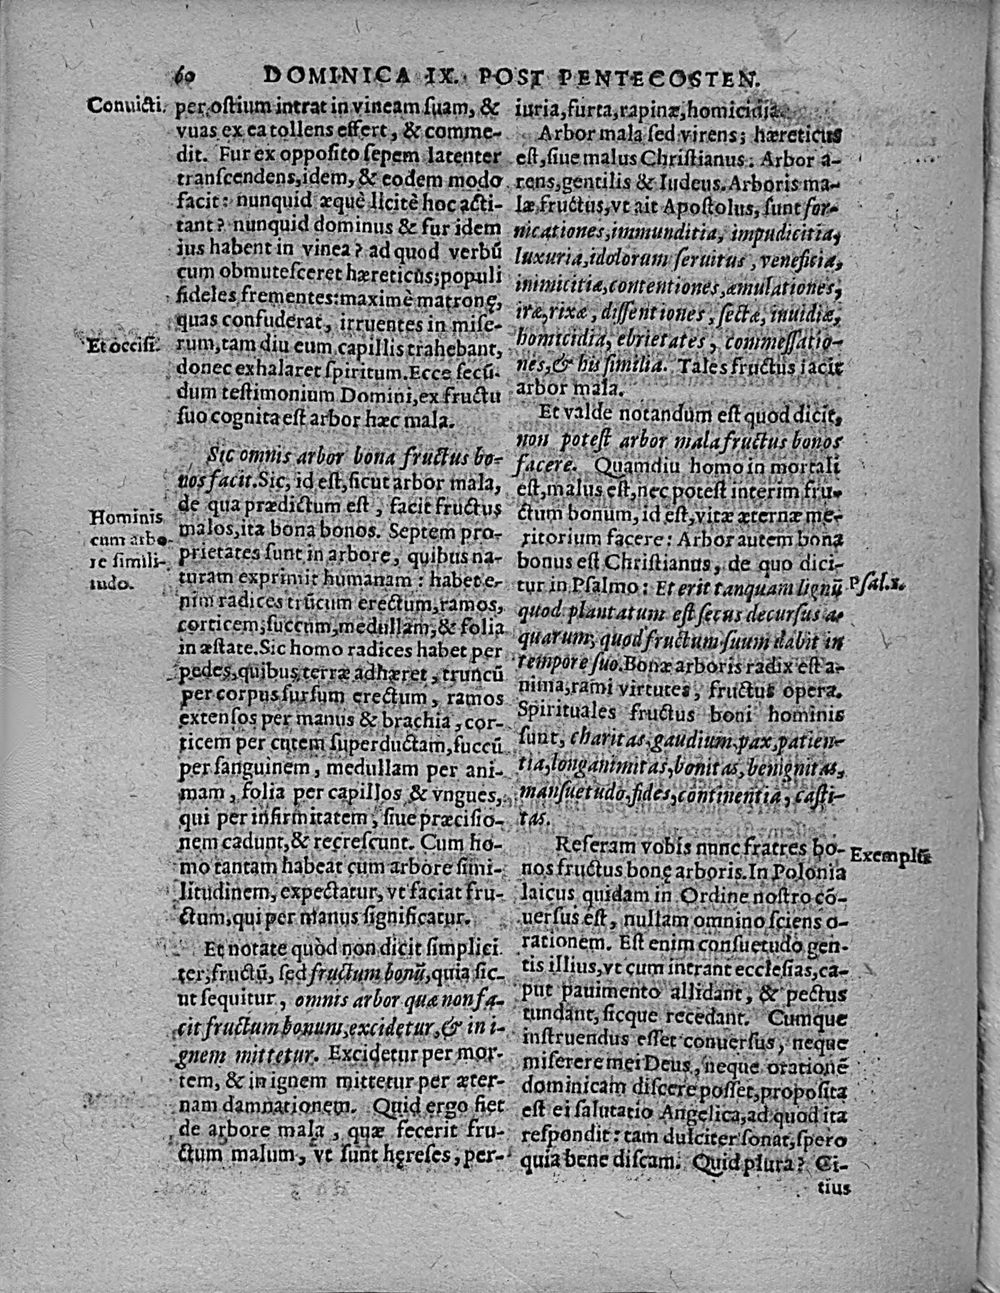 60 DOMINICA IX. POST PENTECOSTEN.
Conuicti.
per ostium intrat in vineam suam, &
vuas ex ea tollens effert, & comme-
dit. Fur ex opposito sepem latenter
transcendens, idem, & eodem modo
facit: nunquid æquè licitè hoc acti-
tant? nunquid dominus & fur idem
ius habent in vinea? ad quod verbū
cum obmutesceret hæreticus; populi
fideles frementes: maximè matronę,
quas confuderat, irruentes in mise-
Et occisi.
rum, tam diu eum capillis trahebant,
donec exhalaret spiritum. Ecce secū-
dum testimonium Domini, ex fructu
suo cognita est arbor hæc mala.
Sic omnis arbor bona fructus bo-
nos facit. Sic, id est, sicut arbor mala,
de qua prædictum est, facit fructus
Hominis
cum arbo-
re simili-
tudo.
malos, ita bona bonos. Septem pro-
prietates sunt in arbore, quibus na-
turam exprimit humanam: habet e-
nim radices trūcum erectum, ramos,
corticem, succum, medullam, & folia
in æstate. Sic homo radices habet per
pedes, quibus terræ adhæret, truncū
per corpus sursum erectum, ramos
extensos per manus & brachia, cor-
ticem per cutem superductam, succū
per sanguinem, medullam per ani-
mam, folia per capillos & vngues,
qui per infirmitatem, siue præcisio-
nem cadunt, & recrescunt. Cum ho-
mo tantam habeat cum arbore simi-
litudinem, expectatur, vt faciat fru-
ctum, qui per manus significatur.
Et notate quòd non dicit simplici
ter, fructū, sed fructum bonū, quia sic-
ut sequitur, omnis arbor quæ non fa-
cit fructum bonum, excidetur, & in i-
gnem mittetur. Excidetur per mor-
tem, & in ignem mittetur per æter-
nam damnationem. Quid ergo fiet
de arbore mala, quæ fecerit fru-
ctum malum, vt sunt hęreses, per-
iuria, furta, rapinæ, homicidia.
Arbor mala sed virens; hæreticus
est, siue malus Christianus: Arbor a-
rens, gentilis & Iudeus. Arboris ma-
læ fructus, vt ait Apostolus, sunt for-
nicationes, immunditia, impudicitia,
luxuria, idolorum seruitus, veneficia,
inimicitiæ, contentiones, æmulationes,
iræ, rixæ, dissentiones, sectæ, inuidiæ,
homicidia, ebrietates, commessatio-
nes, & his similia. Tales fructus iacit
arbor mala.
Et valde notandum est quod dicit,
non potest arbor mala fructus bonos
facere. Quamdiu homo in mortali
est, malus est, nec potest interim fru-
ctum bonum, id est, vitæ æternæ me-
ritorium facere: Arbor autem bona
bonus est Christianus, de quo dici-
tur in Psalmo: Et erit tanquam lignū
Psal. 1.
quod plantatum est secus decursus a-
quarum, quod fructum suum dabit in
tempore suo. Bonæ arboris radix est a-
nima, rami virtutes, fructus opera.
Spirituales fructus boni hominis
sunt, charitas, gaudium, pax, patien-
tia, longanimitas, bonitas, benignitas,
mansuetudo, fides, continentia, casti-
tas.
Referam vobis nunc fratres bo-
Exemplū
nos fructus bonę arboris. In Polonia
laicus quidam in Ordine nostro cō-
uersus est, nullam omnino sciens o-
rationem. Est enim consuetudo gen-
tis illius, vt cum intrant ecclesias, ca-
put pauimento allidant, & pectus
tundant, sicque recedant. Cumque
instruendus esset conuersus, neque
miserere mei Deus, neque orationē
dominicam discere posset, proposita
est ei salutatio Angelica, ad quod ita
respondit: tam dulciter sonat, spero
quia bene discam. Quid plura? Ci-
tius